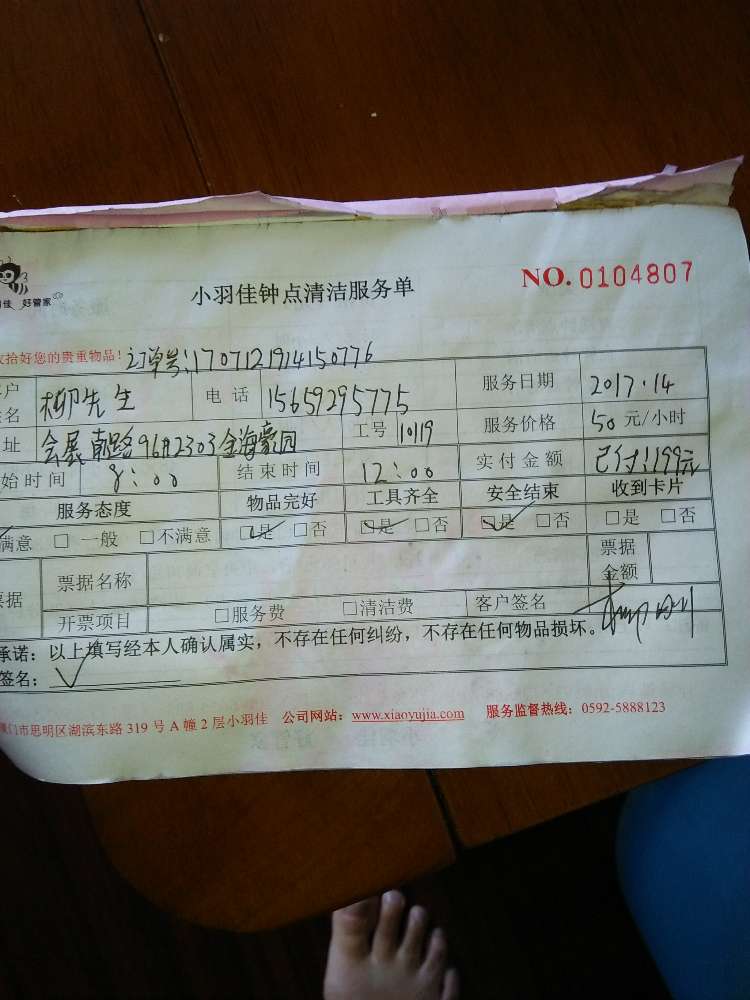 好管家
小羽佳钟点清洁服务单 NO. 0104807
拾好您的贵重物品! 订单号:1707121914150776
户 名 柳先生 电话 15659295775 服务日期 2017.14
址 会展南路96#2303金海豪园 工号 10119 服务价格 50 元/小时
始时间 8:00 结束时间 12:00 实付金额 已付:199元
服务态度 物品完好 工具齐全 安全结束 收到卡片
满意 □ 一般 □不满意 □是 □否 □是 □否 □是 □否 □是 □否
据 票据名称 票据金额
开票项目 □服务费 □清洁费 客户签名
承诺:以上填写经本人确认属实,不存在任何纠纷,不存在任何物品损坏。
签名:
门市思明区湖滨东路 319 号 A 幢 2 层小羽佳 公司网站:www.xiaoyujia.com 服务监督热线:0592-5888123